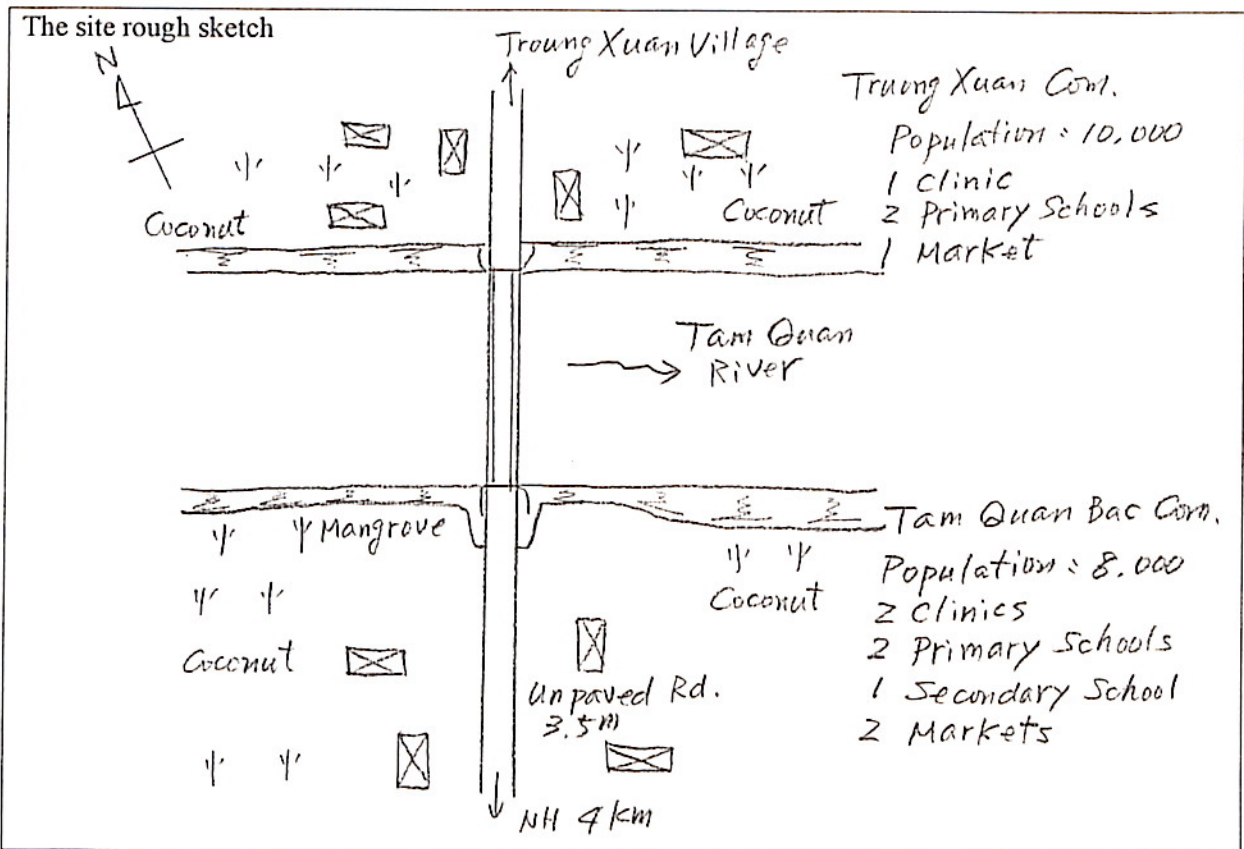 The site rough sketch
N
Troung Xuan Village
Truong Xuan Com.
Population : 10,000
1 Clinic
2 Primary Schools
1 Market
Coconut
Coconut
Tam Quan
River
Mangrove
Coconut
Coconut
Tam Quan Bac Com.
Population : 8,000
2 Clinics
2 Primary Schools
1 Secondary School
2 Markets
Unpaved Rd.
3.5m
NH 4 km